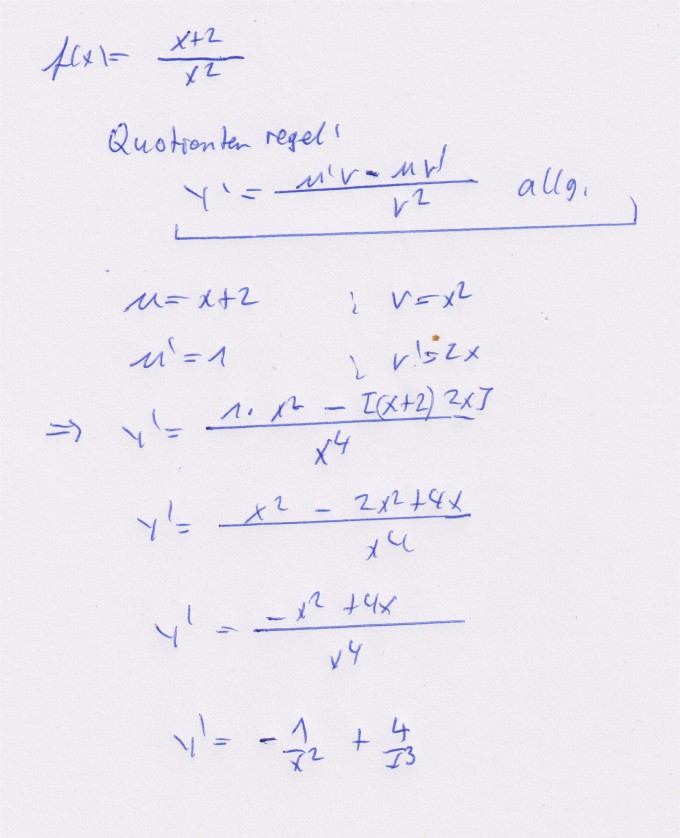 f(x)= (x+2)/x²
Quotienten regel:
y' = (u'v - uv')/v² allg.
u = x+2 ; v = x²
u' = 1 ; v' = 2x
⇒ y' = (1· x² - [(x+2) 2x])/x⁴
y' = (x² - 2x²+4x)/x⁴
y' = (-x² +4x)/x⁴
y' = - 1/x² + 4/x³